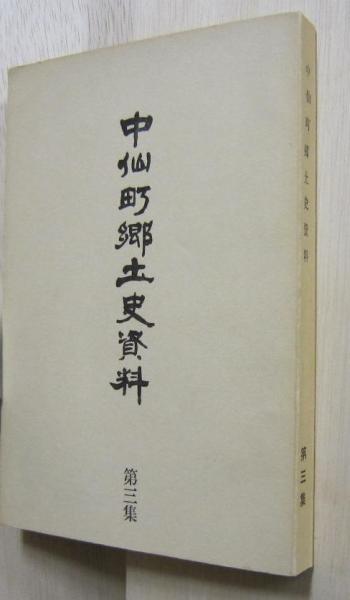 中仙町郷土史資料
第三集
中仙町郷土史資料
第三集